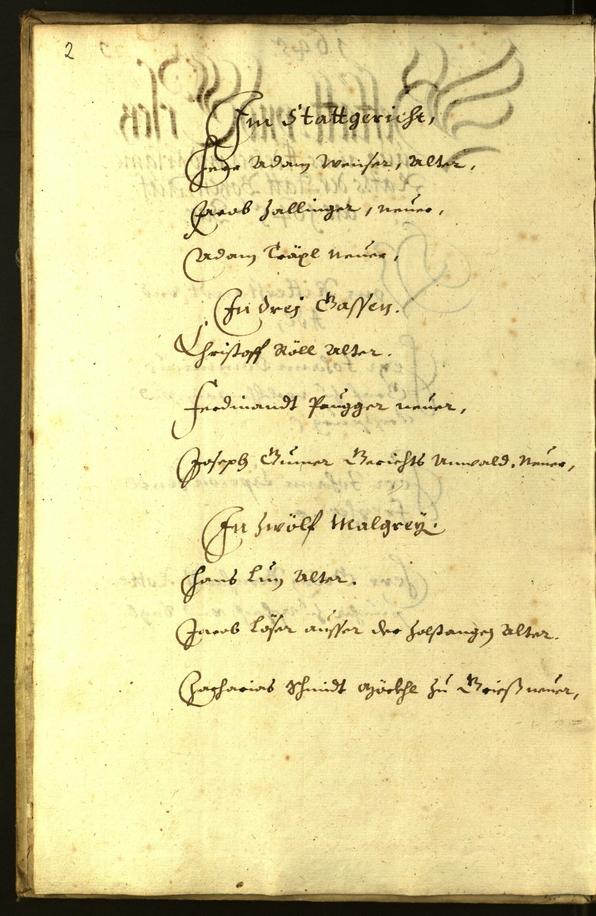 2
Im Stattgericht,
Adam Weiser, Alter,
Jacob Zallinger, neuer,
Adam Träpl Neuer,
In drej Gassen.
Christoff Röll Alter.
Ferdinandt Paugger neuer,
Joseph Gumer Gerichts Anwald. Neuer,
In Zwölf Malgrey.
Hans Lun Alter.
Jacob Löser ausser der Alter.
Zacharias Schmidt zu Grieß neuer,